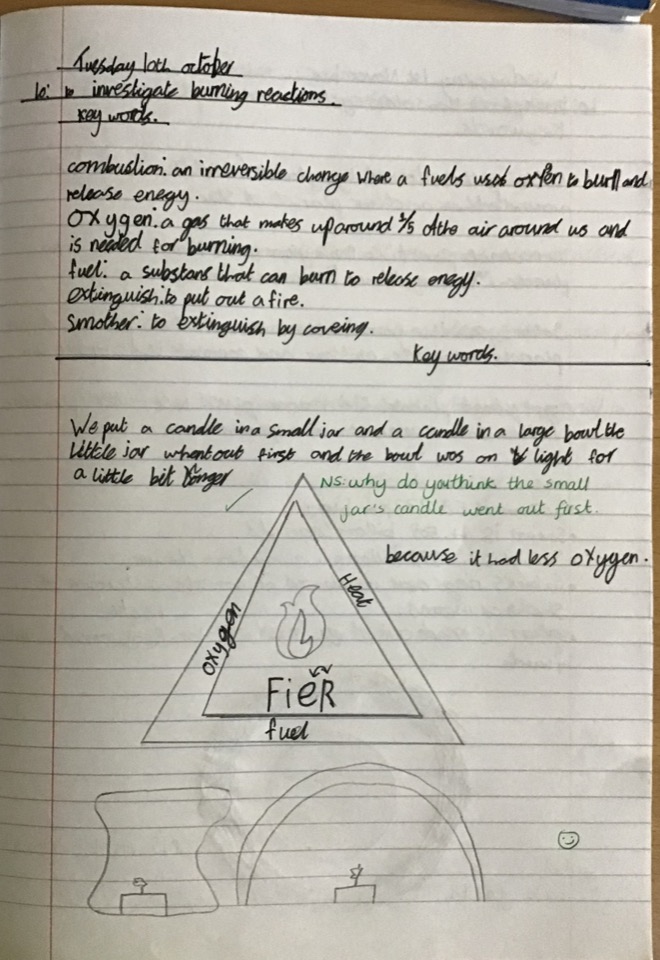 Tuesday 10th october
lo: to investigate burning reactions.
Key words.
combustion: an irreversible change where a fuels used oxygen to burn and
release enegy.
Oxygen: a gas that makes up around 1/5 of the air around us and
is needed for burning.
fuel: a substans that can burn to release enegy.
extinguish: to put out a fire.
Smother: to extinguish by coveing.
Key words.
We put a candle in a small jar and a candle in a large bowl the
little jar whent out first and the bowl was on light for
a little bit longer
NS: why do you think the small
jar's candle went out first.
because it had less oxygen.
Oxygen
Heat
FieR
fuel